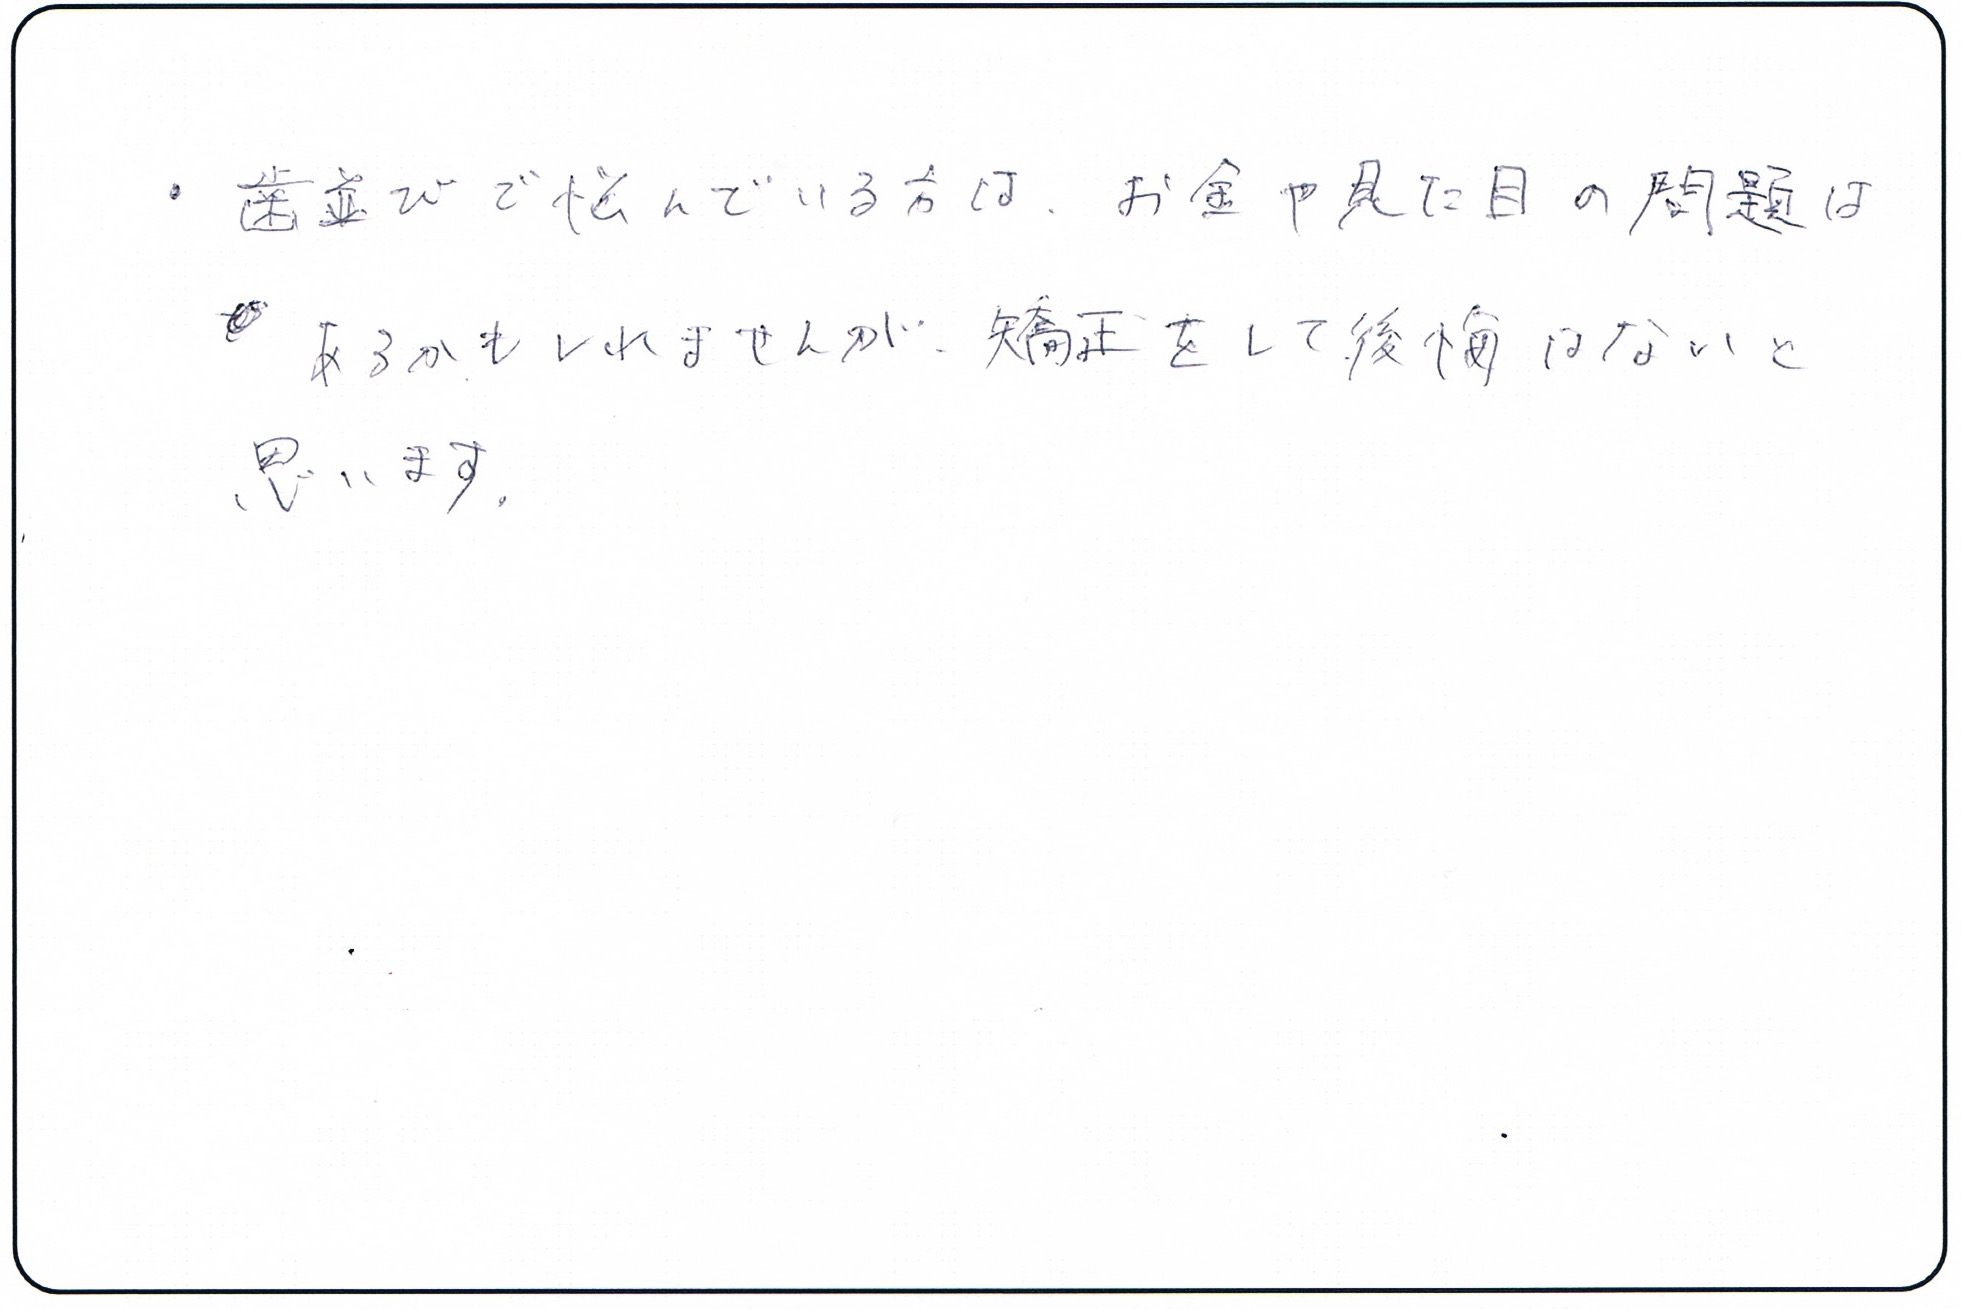 ・歯並びで悩んでいる方は、お金や見た目の問題は
あるかもしれませんが、矯正をして後悔はないと
思います。